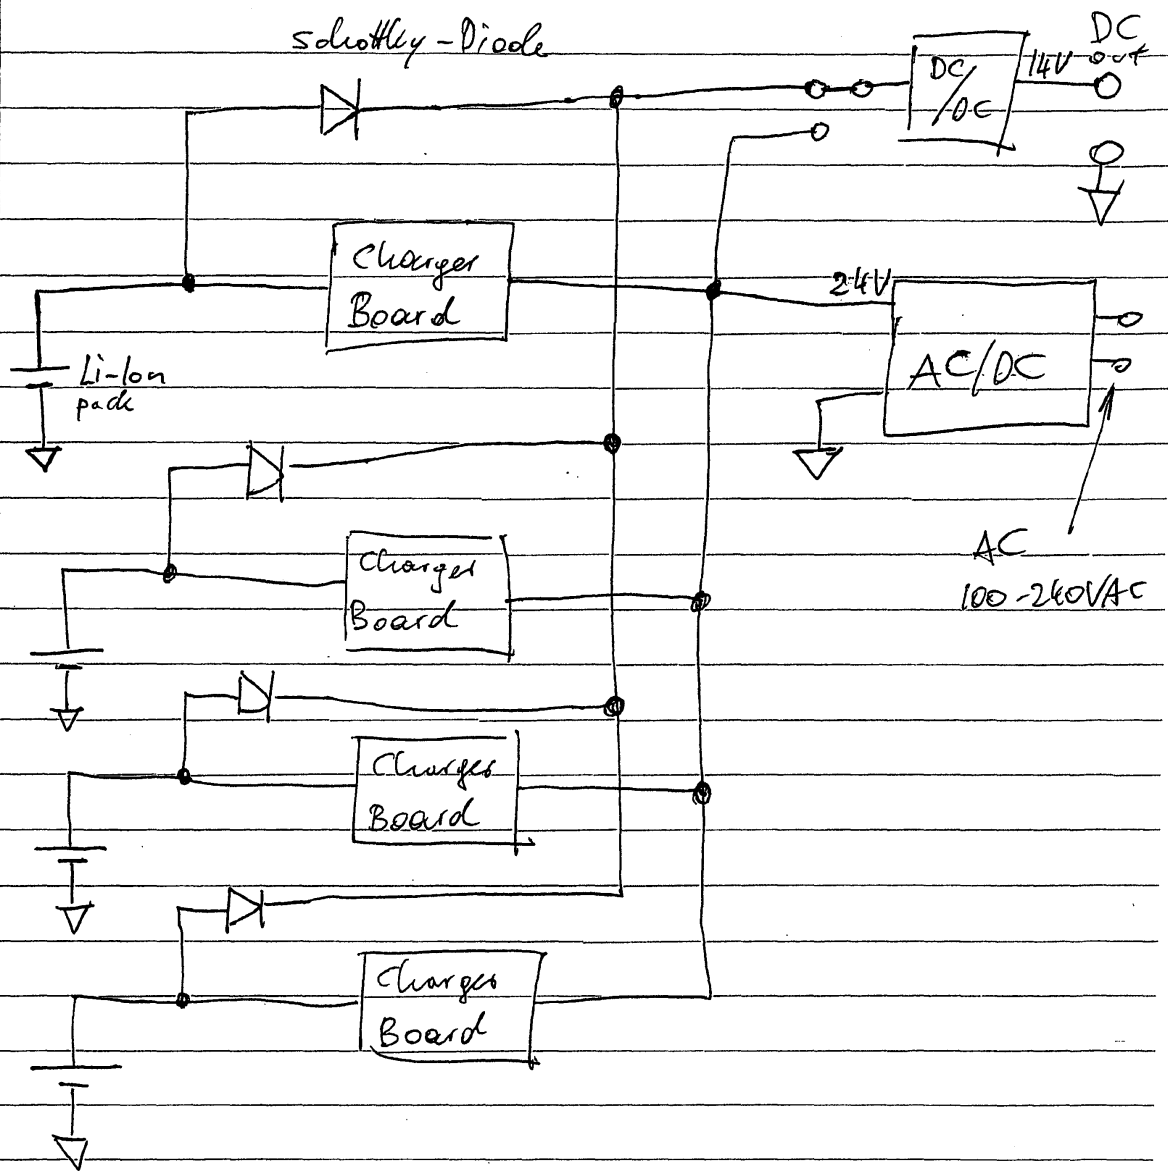 Schottky-Diode
DC
out
DC
/DC
14V
Charger
Board
24V
AC/DC
Li-Ion
pack
AC
100-240VAC
Charger
Board
Charger
Board
Charger
Board